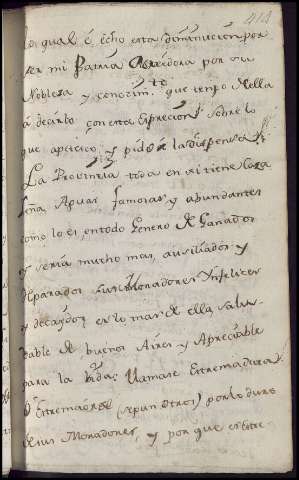 414
lo qual é echo esta diminucion por
ser mi Patria Acreedora por su
Nobleza y conocim.to que tengo de ella
á decirlo con esta Expresion sobre lo
que apetece, y pido á la dispense
La Provincia toda en si tiene Caza
leña, Aguas famosas y abundantes
como lo es, en todo Genero de Ganados
y seria mucho mas, auxiliados y
Separados sus Moradores Ynfelices
y decaydos es lo mas de ella Salu-
dable de buenos Aires y Apreciable
para la Vida; llamase Extremadura
ó Extremaorde (segun otros) por lo duro
de sus Moradores, y por que es Extre-